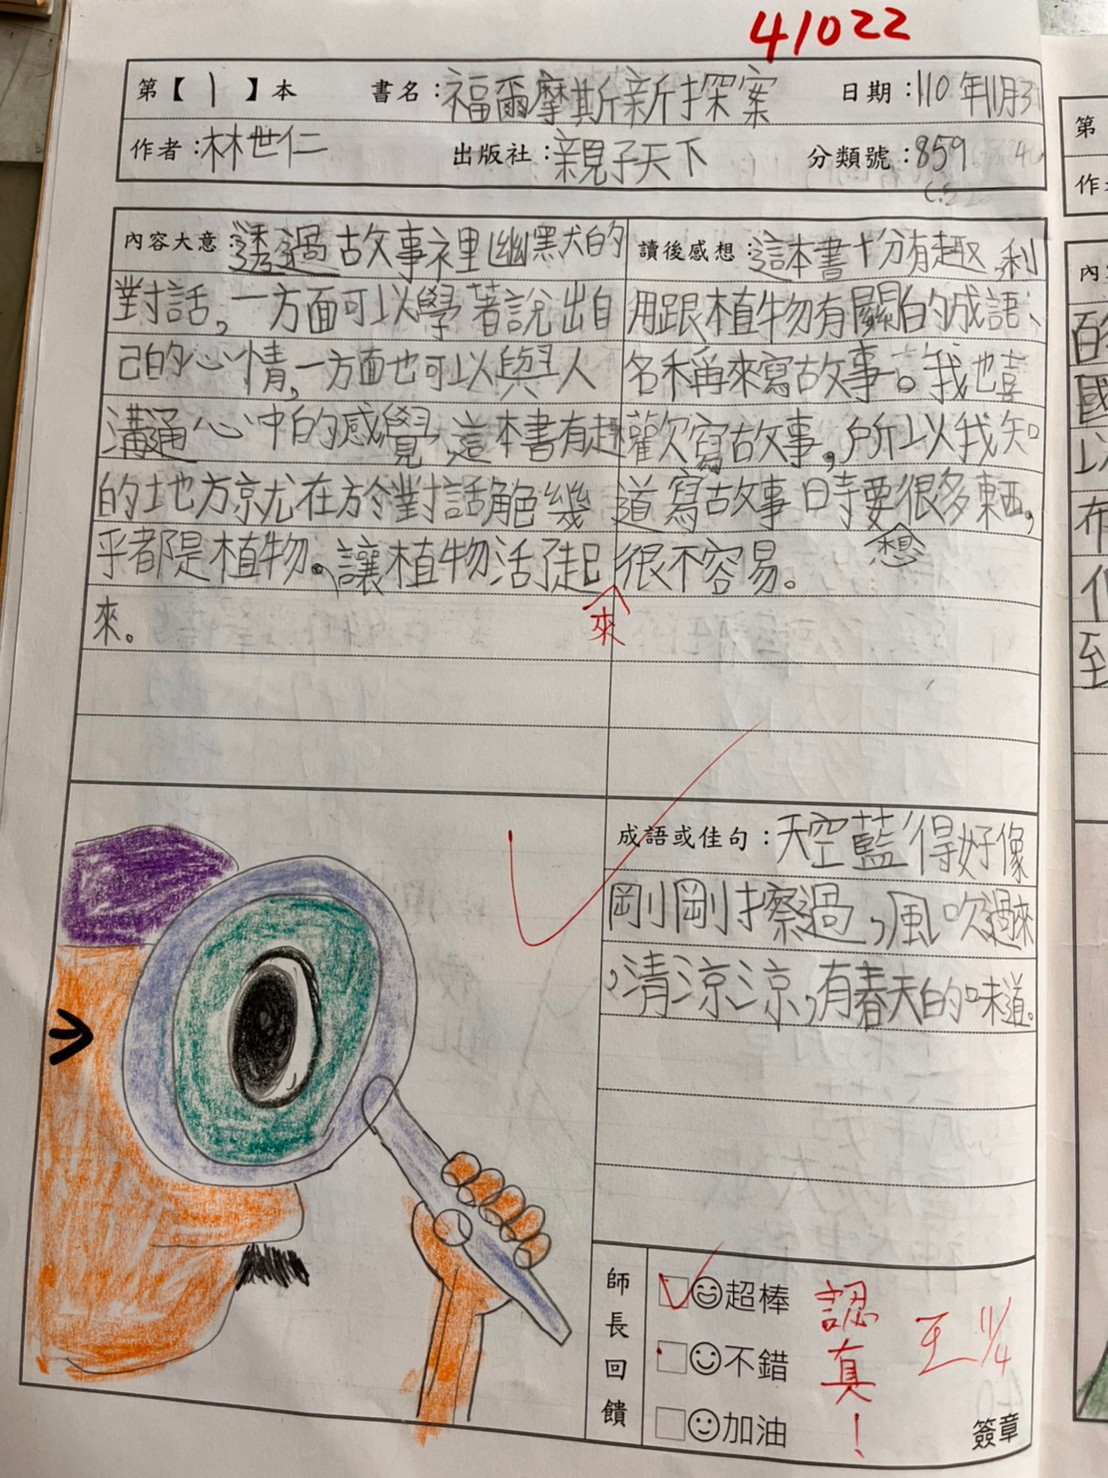 41022
第【1】本 書名:福爾摩斯新探案 日期:110年11月3
作者:林世仁 出版社:親子天下 分類號:859
內容大意:透過故事裡幽默的
對話,一方面可以學著說出自
己的心情,一方面也可以與人
溝通心中的感覺,這本書有趣
的地方就在於對話角色幾
乎都是植物。讓植物活了起
來
來。
讀後感想:這本書十分有趣,利
用跟植物有關的成語、
名稱來寫故事。我也喜
歡寫故事,所以我知
道寫故事時要很多東西,
想
很不容易。
成語或佳句:天空藍得好像
剛剛擦過,風吹過來
,清涼涼,有春天的味道。
師長回饋
超棒
不錯
加油
認真!
王 11/4
簽章
第
作
內
國
以
布
至